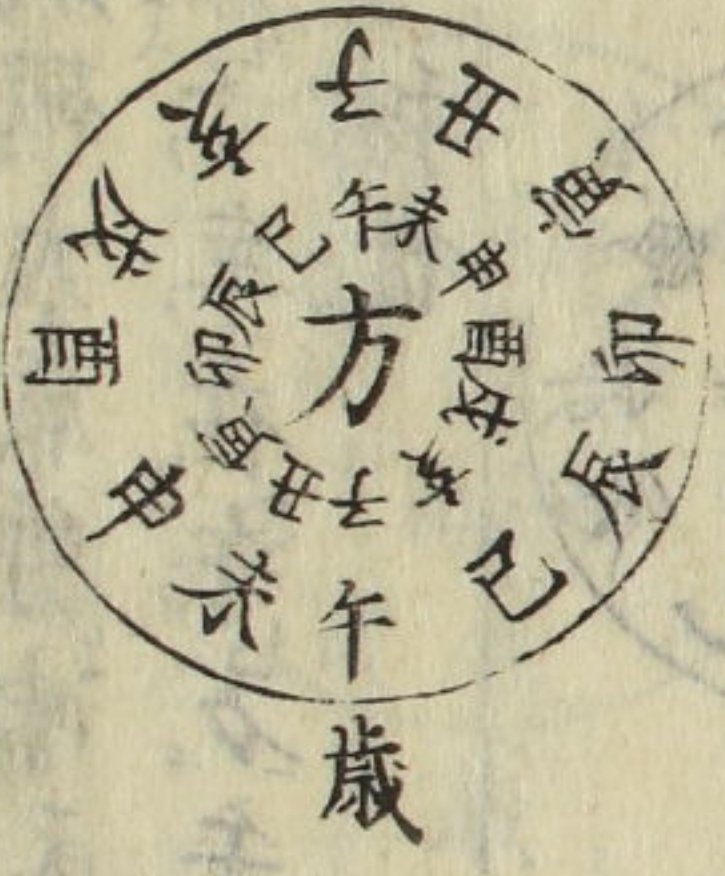 子丑寅卯辰巳午未申酉戌亥
午未申酉戌亥子丑寅卯辰巳
方
歳